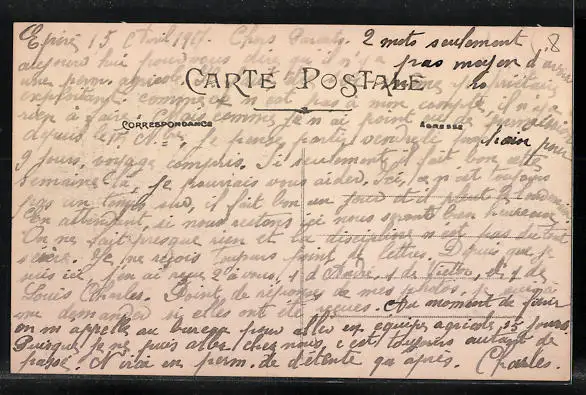 Epiré 15 Avril 1917. Chers Parents. 2 mots seulement
aujourd'hui pour vous dire qu'il n'y a pas moyen d'avoir
une perm. agricole propriétaire
CARTE POSTALE
exploitant comme ce n'est pas à mon compte, il n'y a
rien à faire. Mais comme je n'ai point eu de permission
CORRESPONDANCE
ADRESSE
depuis le Je pense partir vendredi prochain pour
9 jours, voyage compris. Si seulement il fait bon cette
semaine là, je pourrais vous aider. Ici, ce n'est toujours
pas un temps sûr, il fait bon un jour et il pleut le lendemain
En attendant, si nous restons ici nous serons bien heureux
On ne fait presque rien et la discipline n'est pas du tout
sévère. Je ne reçois toujours point de lettres. Depuis que je
suis ici j'en ai reçu 2 à vous, 1 d' 1 de et 1 de
Louis Charles. Point de réponses de mes photos. Je
me demander si elles ont été reçues. Au moment de finir
on m'appelle au bureau pour aller en équipe agricole, 15 jours.
Puisque je ne puis aller chez nous, c'est toujours autant de
passé. N'irai en perm. de détente qu'après. Charles.